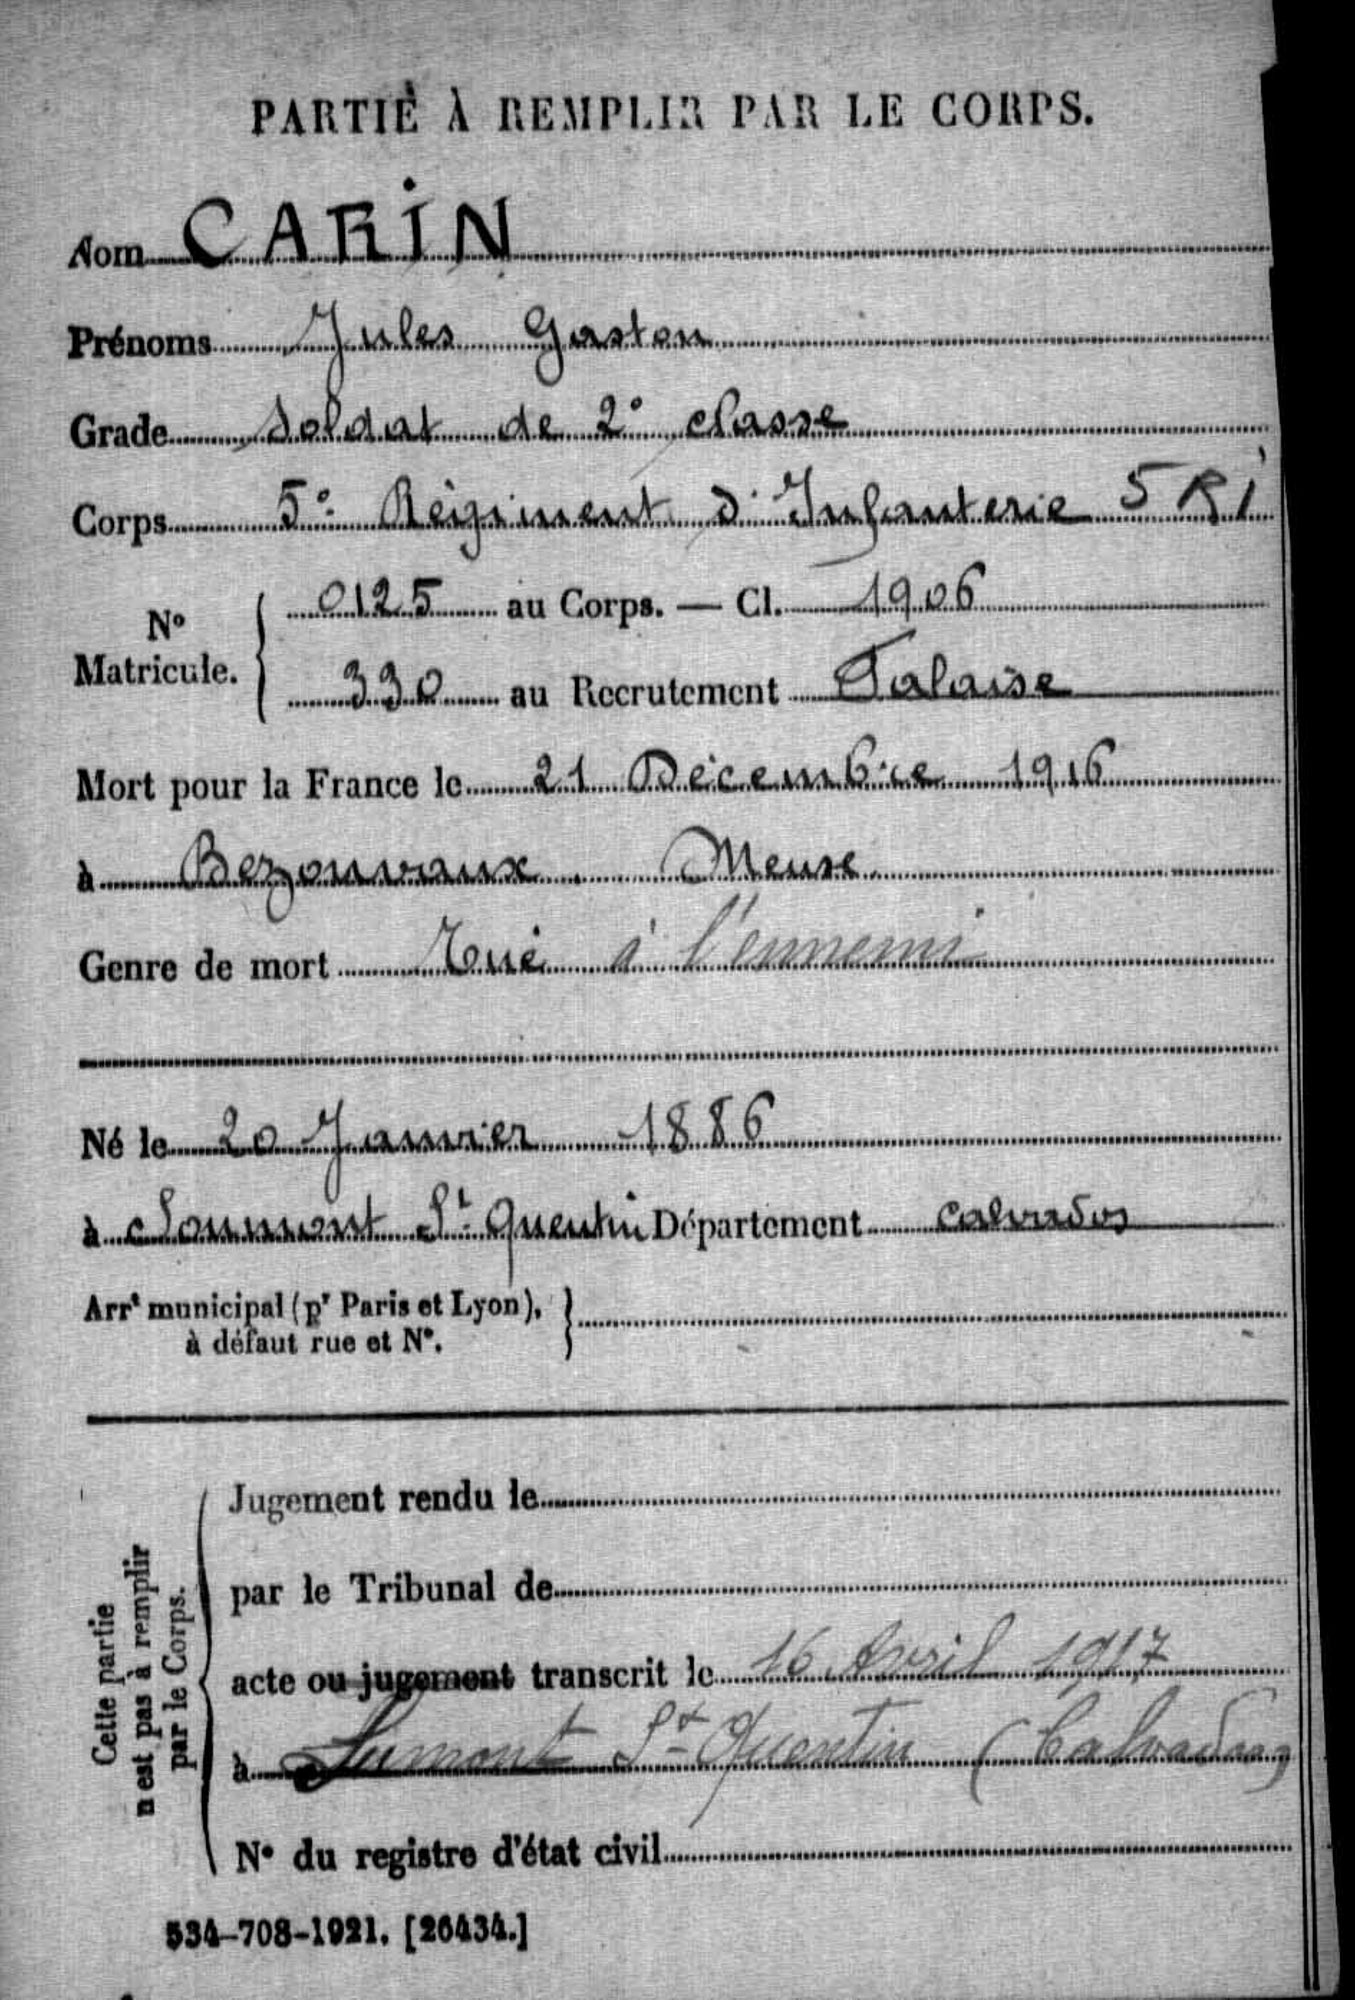 PARTIE À REMPLIR PAR LE CORPS.
Nom CARIN
Prénoms Jules Gaston
Grade Soldat de 2e classe
Corps 5e Régiment d'Infanterie 5 RI
No Matricule. { 0125 au Corps. — Cl. 1906
330 au Recrutement Falaise
Mort pour la France le 21 Décembre 1916
à Bezonvaux Meuse
Genre de mort Tué à l'ennemi
Né le 20 Janvier 1886
à Soumont St Quentin Département Calvados
Arrt municipal (pr Paris et Lyon), }
à défaut rue et No.
Cette partie
n'est pas à remplir
par le Corps.
Jugement rendu le
par le Tribunal de
acte ou jugement transcrit le 16 Avril 1917
à Soumont St Quentin (Calvados)
No du registre d'état civil
534-708-1921. [26434.]